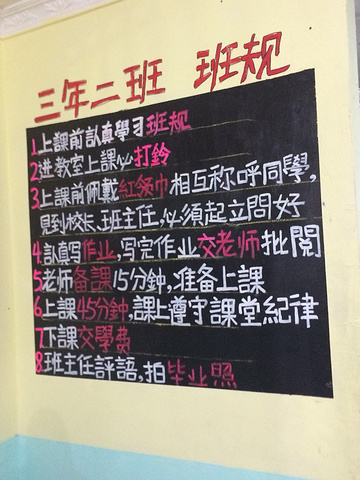 三年二班 班规
1上課前認真學习班规
2进教室上課必打鈴
3上課前佩戴紅領巾相互称呼同學,
見到校长、班主任,必須起立問好
4認真写作业,写完作业交老师批閲
5老师备課15分鈡,准备上課
6上課45分鈡,課上遵守課堂紀律
7下課交學费
8班主任評語,拍毕业照